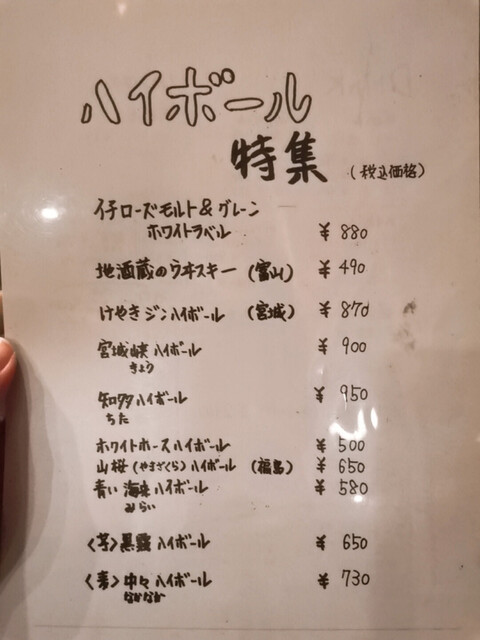 ハイボール
特集 (税込価格)
イチローズモルト&グレーン
ホワイトラベル ¥880
地酒蔵のウヰスキー (富山) ¥490
けやきジンハイボール (宮城) ¥870
宮城峡ハイボール ¥900
きょう
知多ハイボール ¥950
ちた
ホワイトホースハイボール ¥500
山桜(やまざくら)ハイボール (福島) ¥650
青い海味ハイボール ¥580
みらい
<芋>黒霧ハイボール ¥650
<麦>中々ハイボール ¥730
なかなか